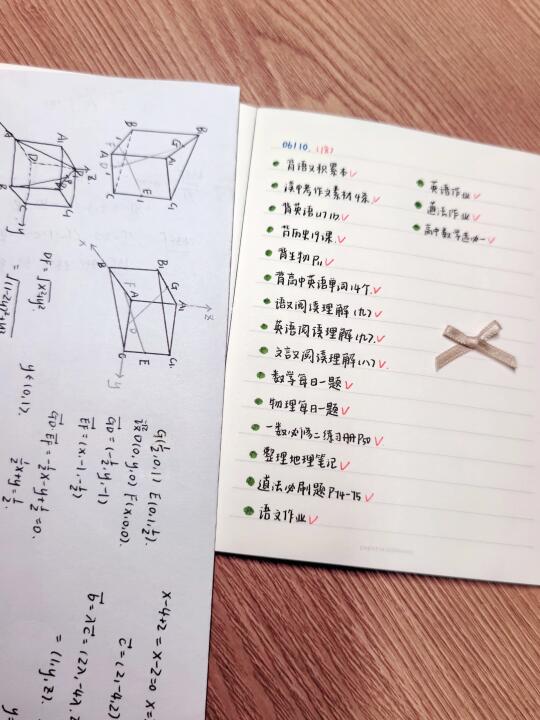 06110. (18)
背语文积累本✓
读中考作文素材4条✓
背英语U7 ✓
背历史19课✓
背生物P11✓
背高中英语单词14个✓
语文阅读理解(九)✓
英语阅读理解(九)✓
文言文阅读理解(八)✓
数学每日一题✓
物理每日一题✓
一数必修二练习册P50✓
整理地理笔记✓
道法必刷题P74-75✓
语文作业✓
英语作业✓
道法作业✓
高中数学选必一✓
G(½,0,1) E(0,1,½).
D(0,y,0) F(x,0,0).
GD=(-½,y,-1)
EF=(x,-1,-½)
GD·EF=-½x-y+½=0.
½x+y=½.
y∈(0,1).
DF=√x²+y².
x-4+2=x-2=0
c=(2,-4,2)
b=λc=(2λ,-4λ,
=(1,y,z).